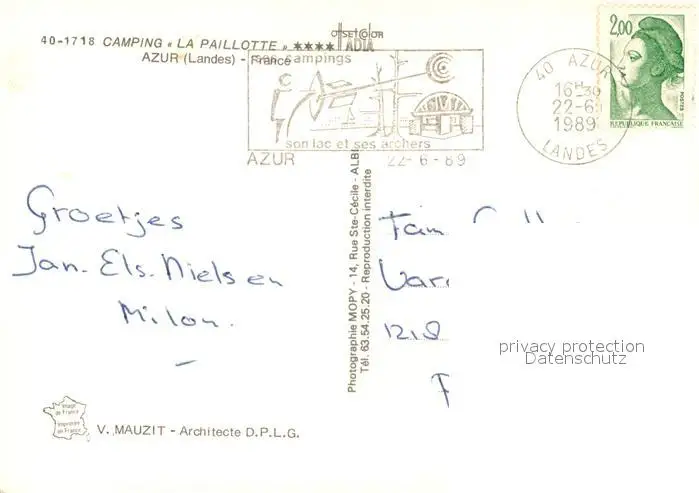 40-1718 CAMPING « LA PAILLOTTE » ★★★★
AZUR (Landes) - France
offset color
ADIA
campings
son lac et ses archers
AZUR 22-6-89
40 AZUR
16H30
22-6
1989
LANDES
2,00
POSTES
REPUBLIQUE FRANCAISE
Groetjes
Jan. Els. Niels en
Milou.
Photographie MOPY - 14, Rue Ste-Cécile - ALBI
Tél. 63.54.25.20 - Reproduction interdite
Fam
privacy protection
Datenschutz
Image
de France
Imprimée
en France
V. MAUZIT - Architecte D.P.L.G.